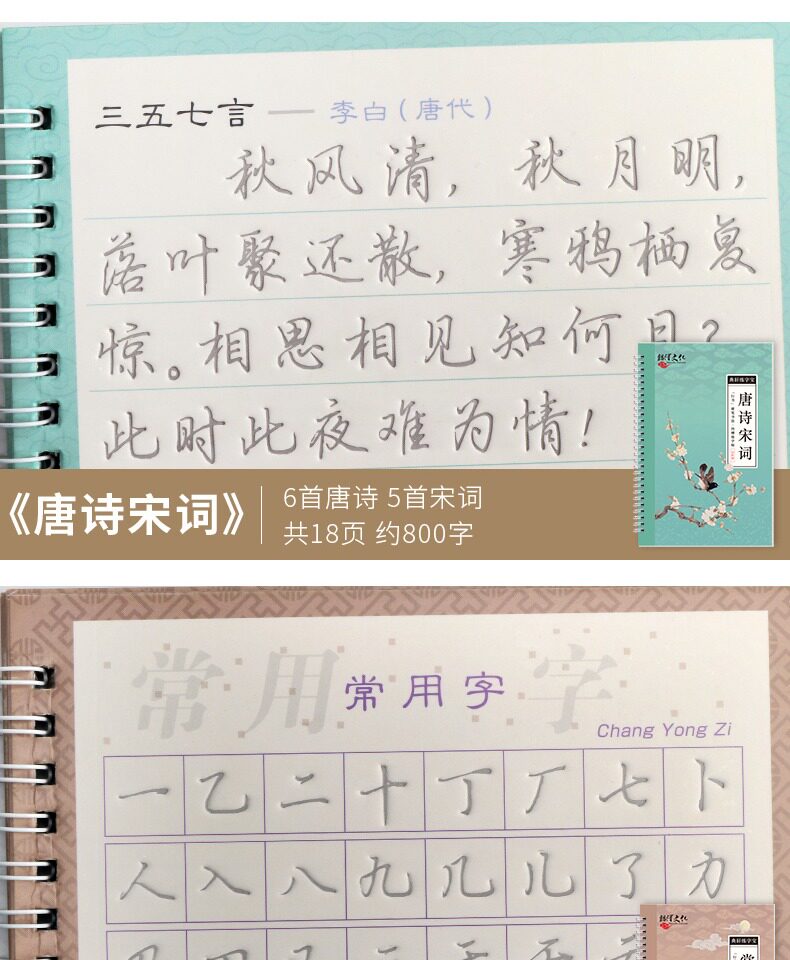 三五七言 — 李白(唐代)
秋风清，秋月明，
落叶聚还散，寒鸦栖复
惊。相思相见知何日？
此时此夜难为情！
唐诗宋词
《唐诗宋词》
6首唐诗 5首宋词
共18页 约800字
常用字
常用字
Chang Yong Zi
一 乙 二 十 丁 厂 七 卜
人 入 八 九 几 儿 了 力